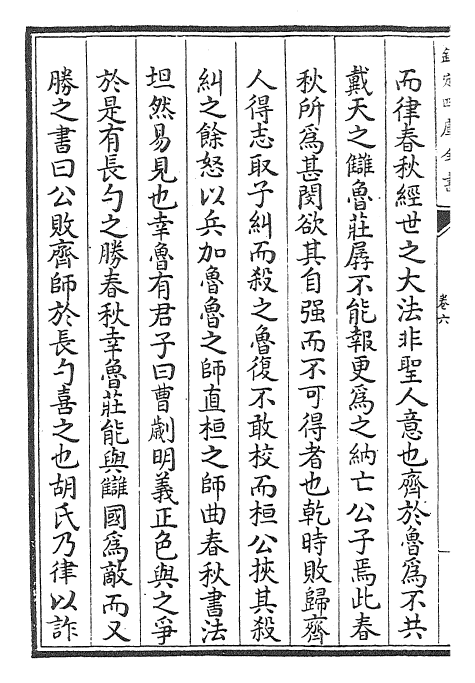 欽定四庫全書
卷六
而律春秋經世之大法非聖人意也齊於魯為不共
戴天之讎魯莊孱不能報更為之納亡公子焉此春
秋所為甚閔欲其自强而不可得者也乾時敗歸齊
人得志取子糾而殺之魯復不敢校而桓公挾其殺
糾之餘怒以兵加魯魯之師直桓之師曲春秋書法
坦然易見也幸魯有君子曰曹劌明義正色與之爭
於是有長勺之勝春秋幸魯莊能與讎國為敵而又
勝之書曰公敗齊師於長勺喜之也胡氏乃律以詐